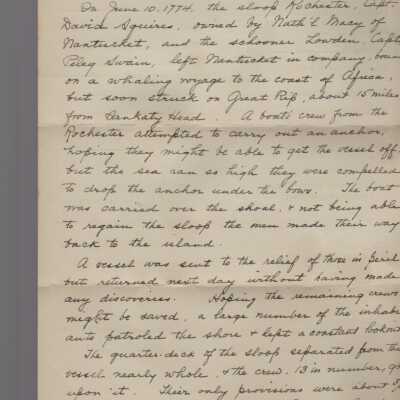 On June 10. 1774. the sloop Rochester, Capt.
David Squires, owned by Nath'l Macy of
Nantucket, and the schooner Lowden, Capt
Peleg Swain, left Nantucket in company, boun
on a whaling voyage to the coast of Africa,
but soon struck on Great Rip, about 15 miles
from Sankaty Head. A boat's crew from the
Rochester attempted to carry out an anchor,
hoping they might be able to get the vessel off,
but the sea ran so high they were compelled
to drop the anchor under the bows. The boat
was carried over the shoal, & not being able
to regain the sloop the men made their way
back to the island.
A vessel was sent to the relief of those in peril
but returned next day without having made
any discoveries. Hoping the remaining crews
might be saved, a large number of the inhabi
ants patroled the shore & kept a constant lookout
The quarter-deck of the sloop separated from the
vessel nearly whole, & the crew, 13 in number, go
upon it. Their only provisions were about